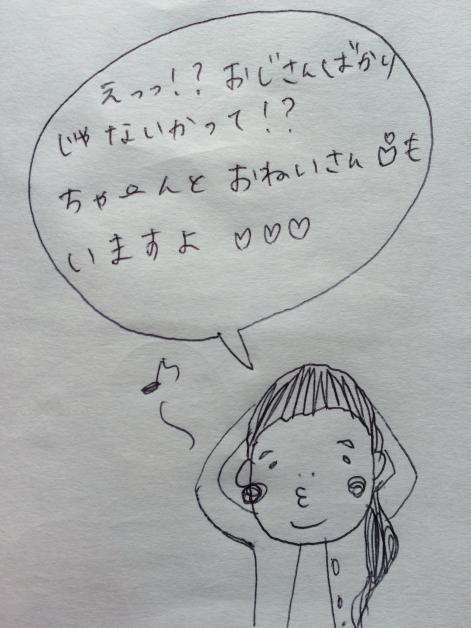 えっっ!? おじさんばかり
じゃないかって!?
ちゃーんと おねいさんも
いますよ ♡♡♡